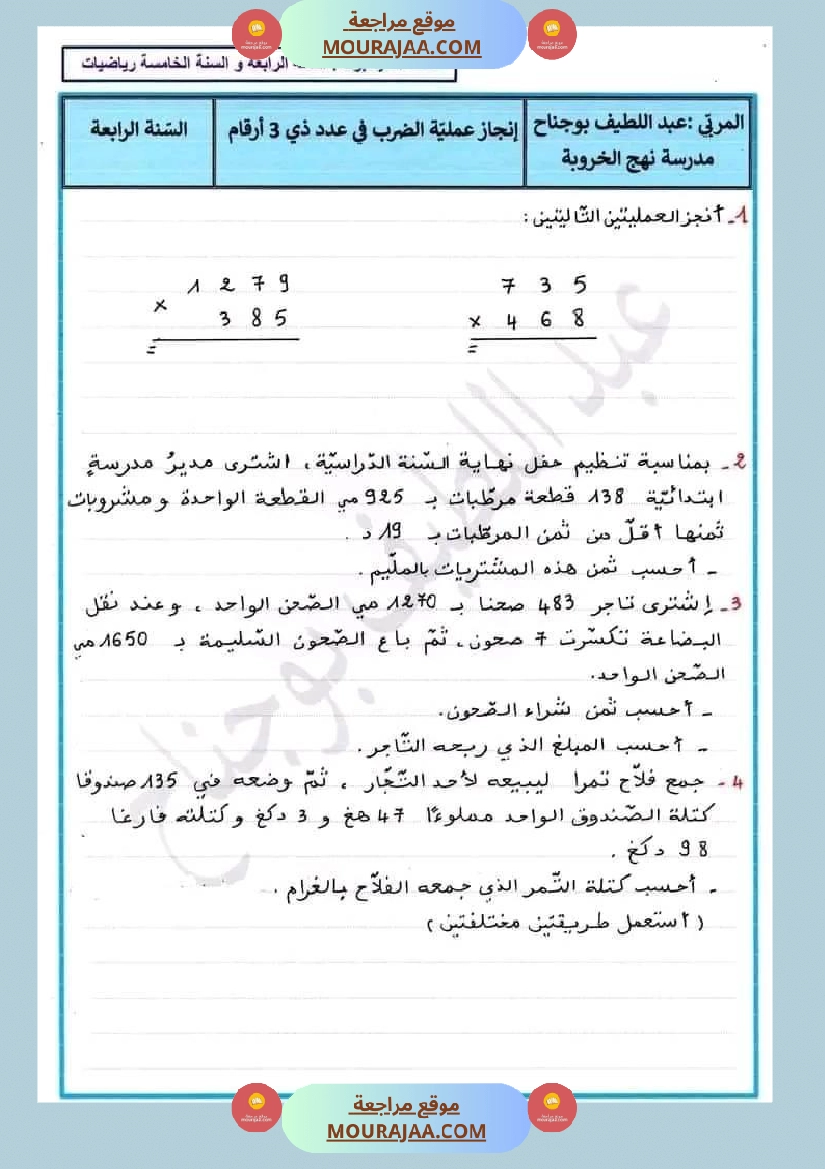 موقع مراجعة
MOURAJAA.COM
الرابعة و السنة الخامسة رياضيات
المربّي :عبد اللطيف بوجناح
مدرسة نهج الخروبة
إنجاز عمليّة الضرب في عدد ذي 3 أرقام
السّنة الرابعة
1ـ أنجز العمليتين التّاليتين :
7 3 5
x 4 6 8
=
1 2 7 9
x
3 8 5
=
2 ـ بمناسبة تنظيم حفل نهاية السّنة الدّراسيّة ، اشترى مديرُ مدرسةٍ
ابتدائيّة 138 قطعة مرطّبات بـ 925 مي القطعة الواحدة و مشروبات
ثمنها أقلّ من ثمن المرطّبات بـ 19 د .
ـ أحسب ثمن هذه المشتريات بالملّيم .
3ـ إشترى تاجر 483 صحنا بـ 1270 مي الصّحن الواحد ، و عند نقل
البضاعة تكسّرت 7 صحون ، ثمّ باع الصّحون السّليمة بـ 1650 مي
الصّحن الواحد.
ـ أحسب ثمن شراء الصّحون.
ـ أحسب المبلغ الذي ربحه التّاجر .
4 ـ جمع فلاّح تمرا ليبيعه لأحد التّجّار ، ثمّ وضعه في 135 صندوقا
كتلة الصّندوق الواحد مملوءًا 47 هغ و 3 دكغ و كتلته فارغا
98 دكغ .
ـ أحسب كتلة التّمر الذي جمعه الفلاّح بالغرام .
( أستعمل طريقتين مختلفتين )
عبد اللطيف بوجناح
موقع مراجعة
MOURAJAA.COM